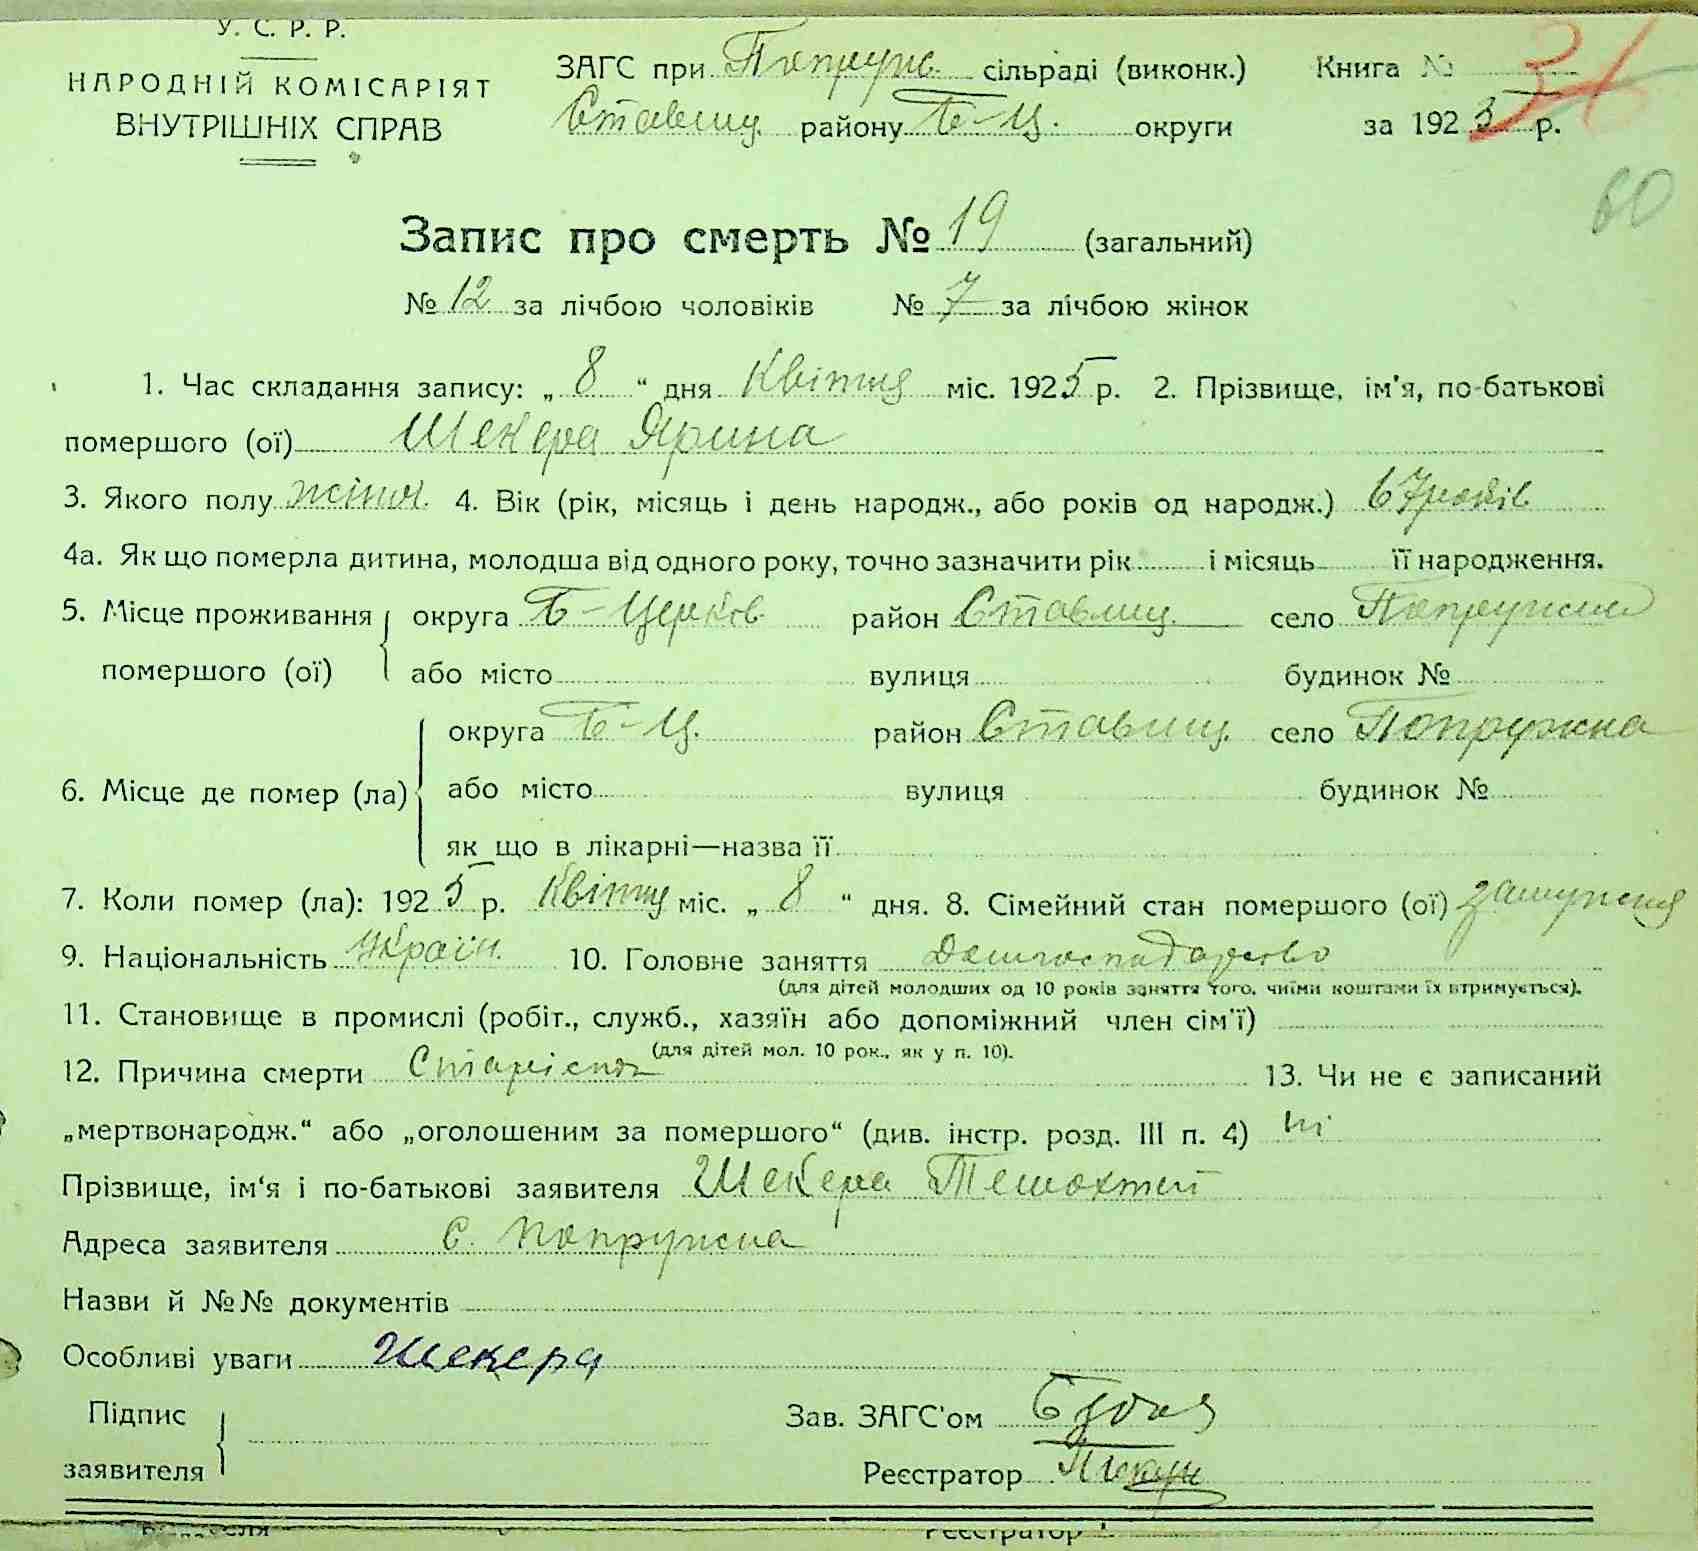 У. С. Р. Р.
НАРОДНІЙ КОМІСАРІЯТ
ВНУТРІШНІХ СПРАВ
ЗАГС при Попруж. сільраді (виконк.) Книга №
Ставищ. району Б-Ц. округи за 1925 р.
60
Запис про смерть № 19 (загальний)
№ 12 за лічбою чоловіків № 7 за лічбою жінок
1. Час складання запису: „ 8 “ дня Квітня міс. 1925 р. 2. Прізвище, ім'я, по-батькові
помершого (ої) Шекера Ярина
3. Якого полу жіноч. 4. Вік (рік, місяць і день народж., або років од народж.) 67 років
4а. Як що померла дитина, молодша від одного року, точно зазначити рік і місяць її народження.
5. Місце проживання округа Б-Церків. район Ставищ. село Попружна
помершого (ої) або місто вулиця будинок №
округа Б-Ц. район Ставищ. село Попружна
6. Місце де помер (ла) або місто вулиця будинок №
як що в лікарні—назва її
7. Коли помер (ла): 1925 р. Квітня міс. „ 8 “ дня. 8. Сімейний стан помершого (ої) замужня
9. Національність Україн. 10. Головне заняття Домгосподарство
(для дітей молодших од 10 років заняття того, чиїми коштами їх втримується).
11. Становище в промислі (робіт., служб., хазяїн або допоміжний член сім'ї)
(для дітей мол. 10 рок., як у п. 10).
12. Причина смерти Старість 13. Чи не є записаний
„мертвонародж.“ або „оголошеним за помершого“ (див. інстр. розд. III п. 4) ні
Прізвище, ім'я і по-батькові заявителя Шекера Тимохтей
Адреса заявителя с. Попружна
Назви й №№ документів
Особливі уваги Шекера
Підпис
заявителя
Зав. ЗАГС'ом
Реєстратор
Реєстратор